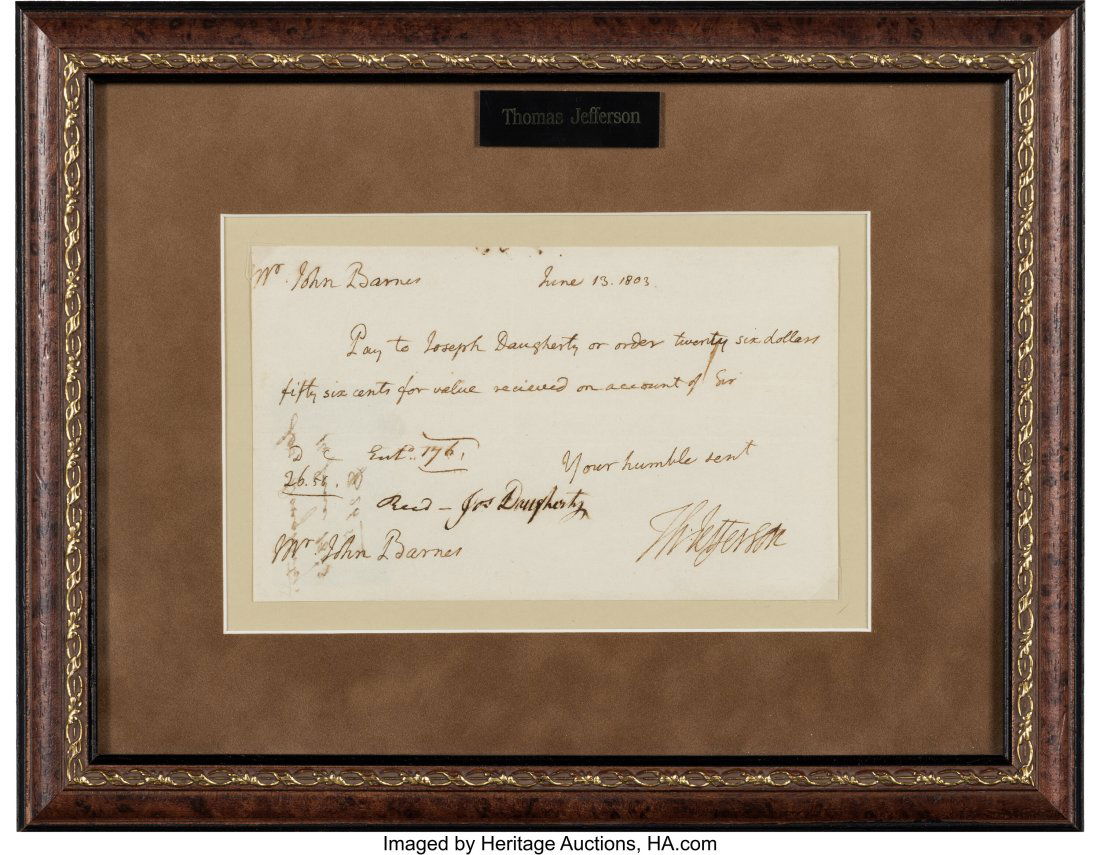 Thomas Jefferson
Mr. John Barnes June 13. 1803.
Pay to Joseph Daugherty or order twenty six dollars
fifty six cents for value recieved on account of Sir
D C Entd. 176,
26.56. Your humble servt
Recd – Jos Daugherty
Mr John Barnes Th: Jefferson
Imaged by Heritage Auctions, HA.com